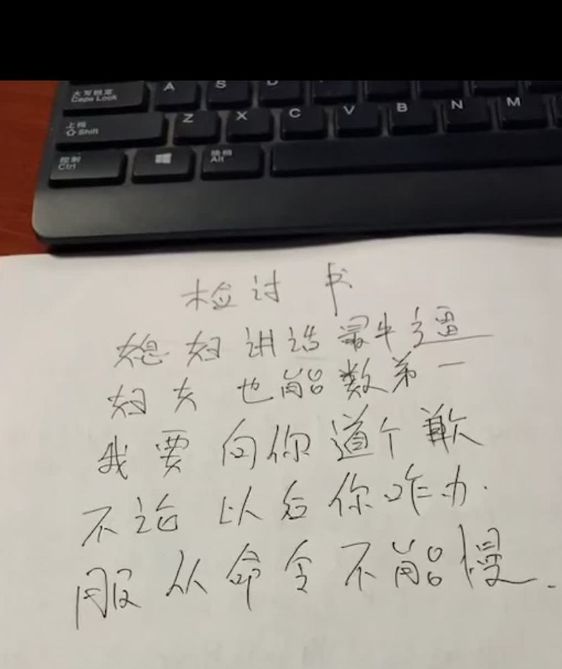 大写锁定
Caps Lock
A S D
上档
Shift
Z X C V B N M
控制
Ctrl
Alt
检讨书
媳妇讲话最牛逼
妇女也能数第一
我要向你道个歉
不论以后你咋办.
服从命令不能慢.